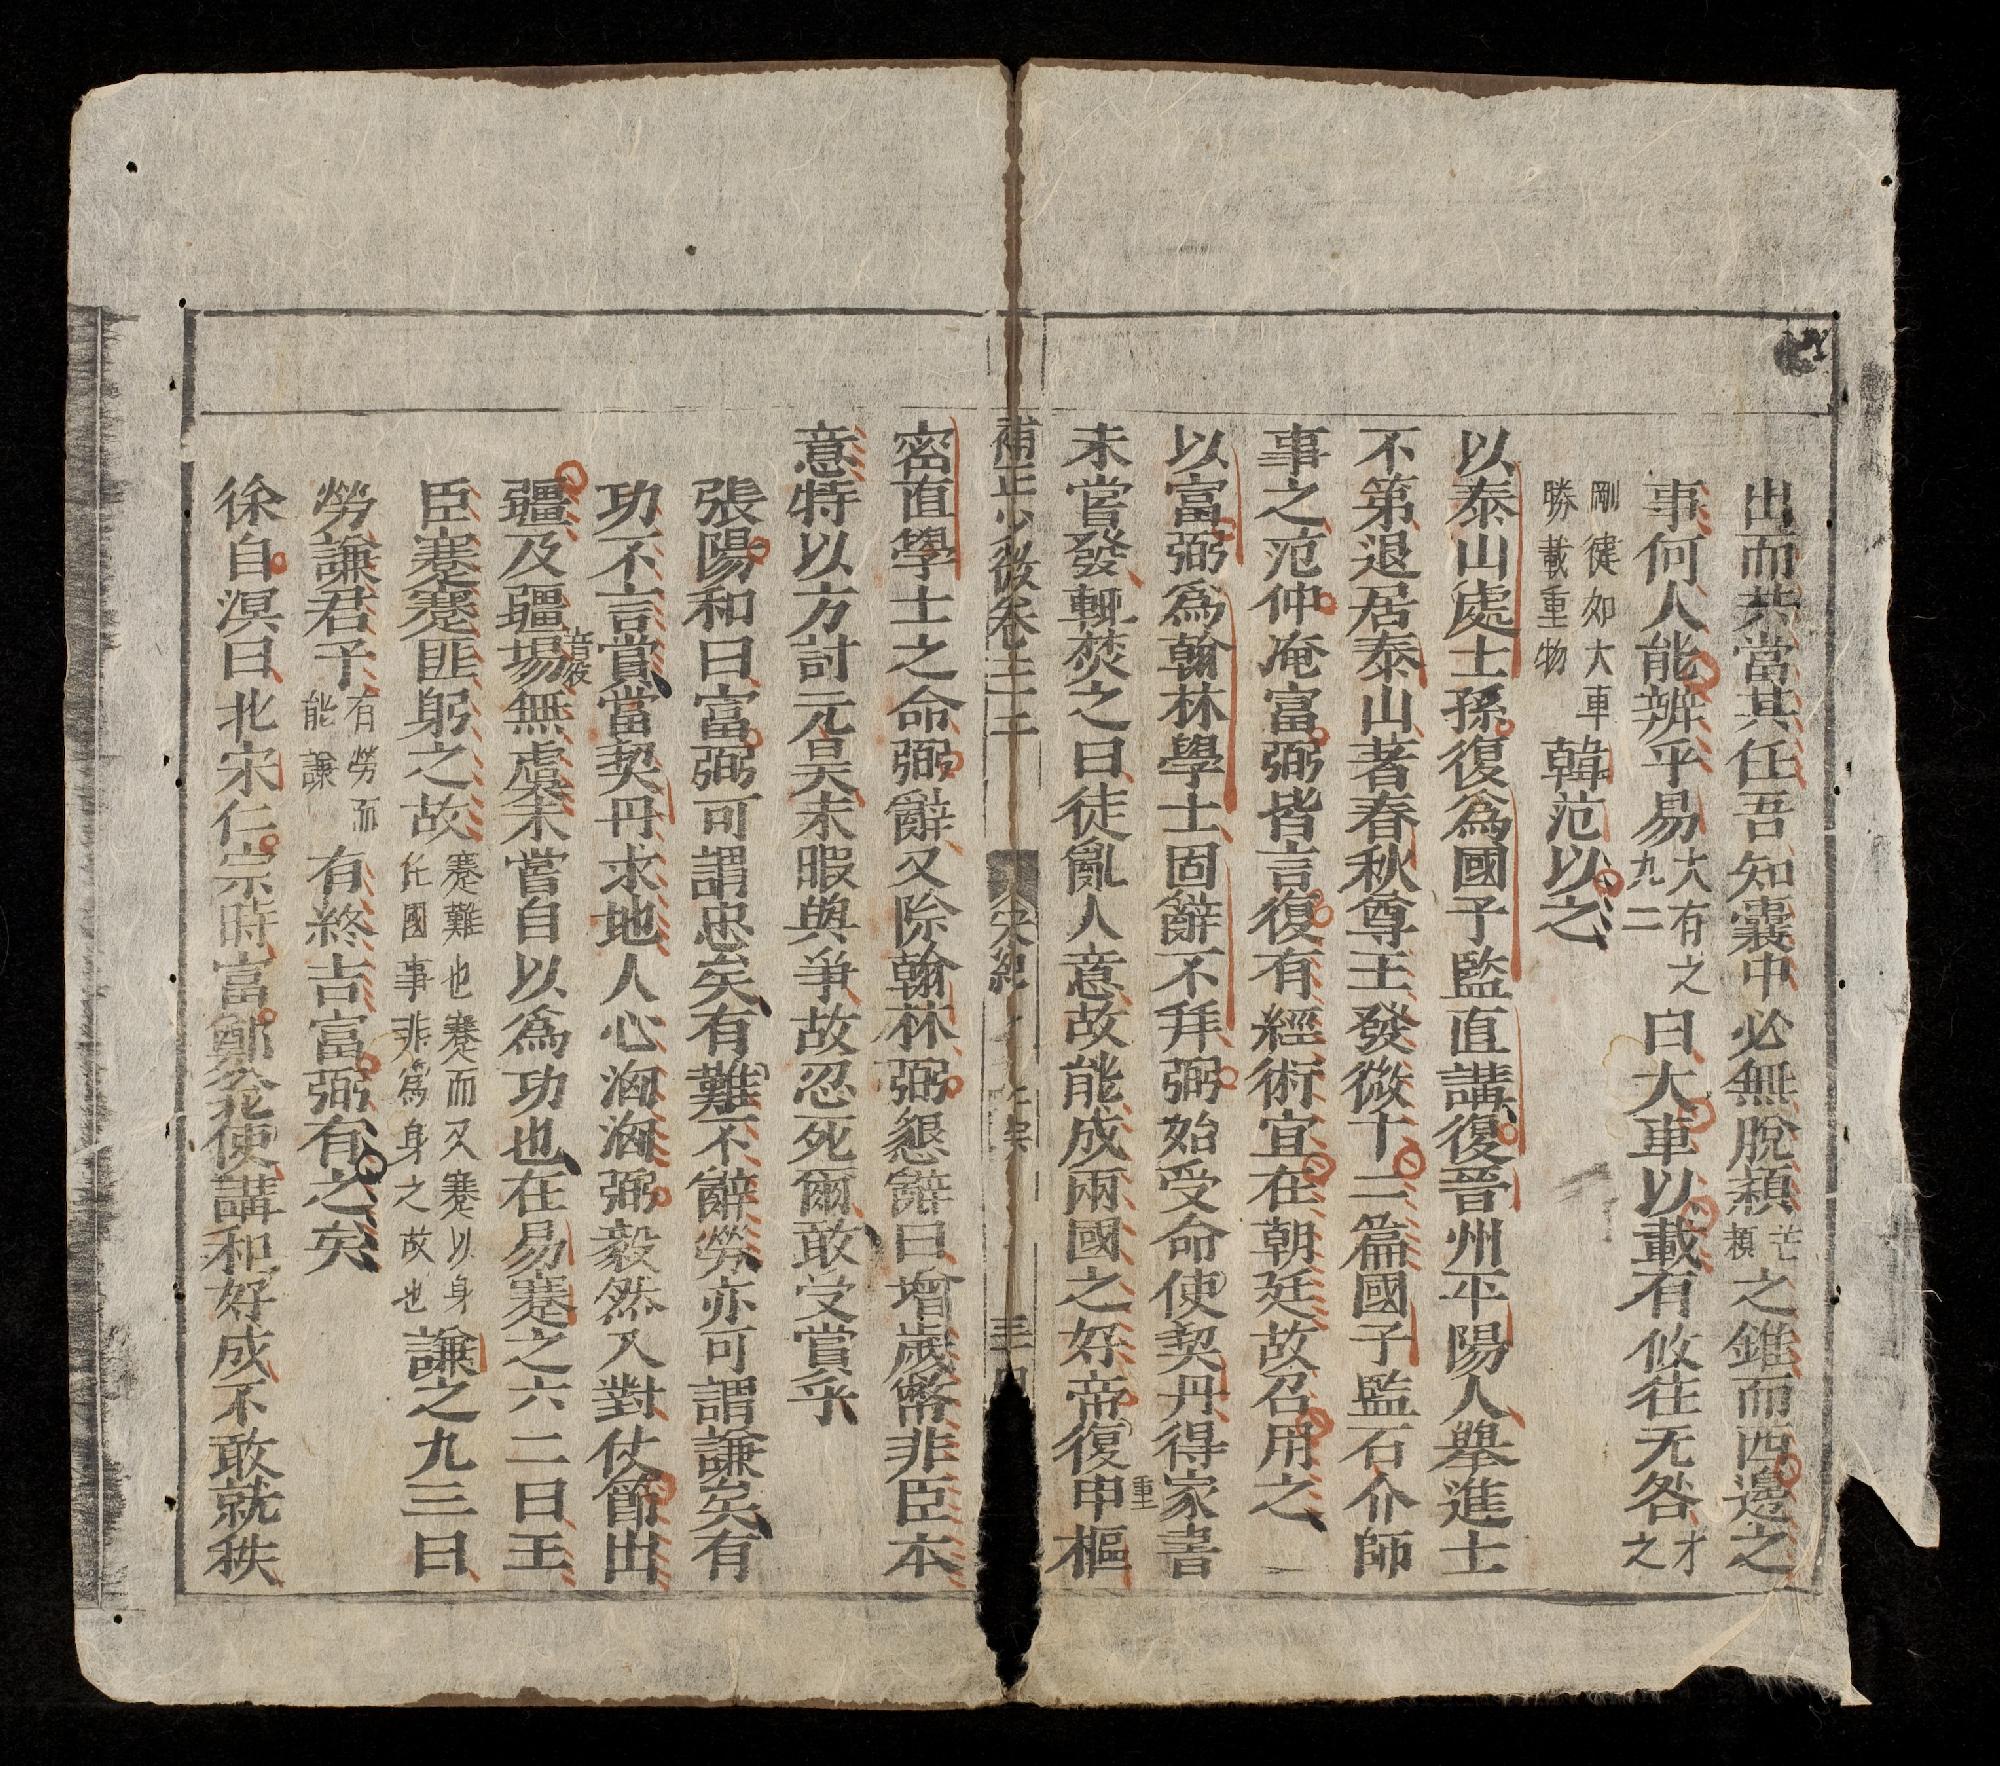 出而共當其任吾知囊中必無脫穎芒穎之錐而西邊之
事何人能辨乎易大有之九二曰大車以載有攸往无咎才之
剛徤如大車勝載重物韓范以之
以泰山處士孫復爲國子監直講復晉州平陽人擧進士
不第退居泰山著春秋尊王發微十二篇國子監石介師
事之范仲淹富弼皆言復有經術宜在朝廷故召用之
以富弼爲翰林學士固辭不拜弼始受命使契丹得家書
未嘗發輒焚之曰徒亂人意故能成兩國之好帝復重申樞
補正少微卷之二
宋紀
三
密直學士之命弼辭又除翰林弼懇辭曰增歲幣非臣本
意特以方討元昊未暇與爭故忍死爾敢受賞乎
張陽和曰富弼可謂忠矣有難不辭勞亦可謂謙矣有
功不言賞當契丹求地人心洶洶弼毅然入對仗節出
疆及疆埸音役無虞未嘗自以爲功也在易蹇之六二曰王
臣蹇蹇匪躬之故蹇難也蹇而又蹇以身任國事非爲身之故也謙之九三曰
勞謙君子有勞而能謙有終吉富弼有之矣
徐自溟曰北宋仁宗時富鄭公使講和好成不敢就秩